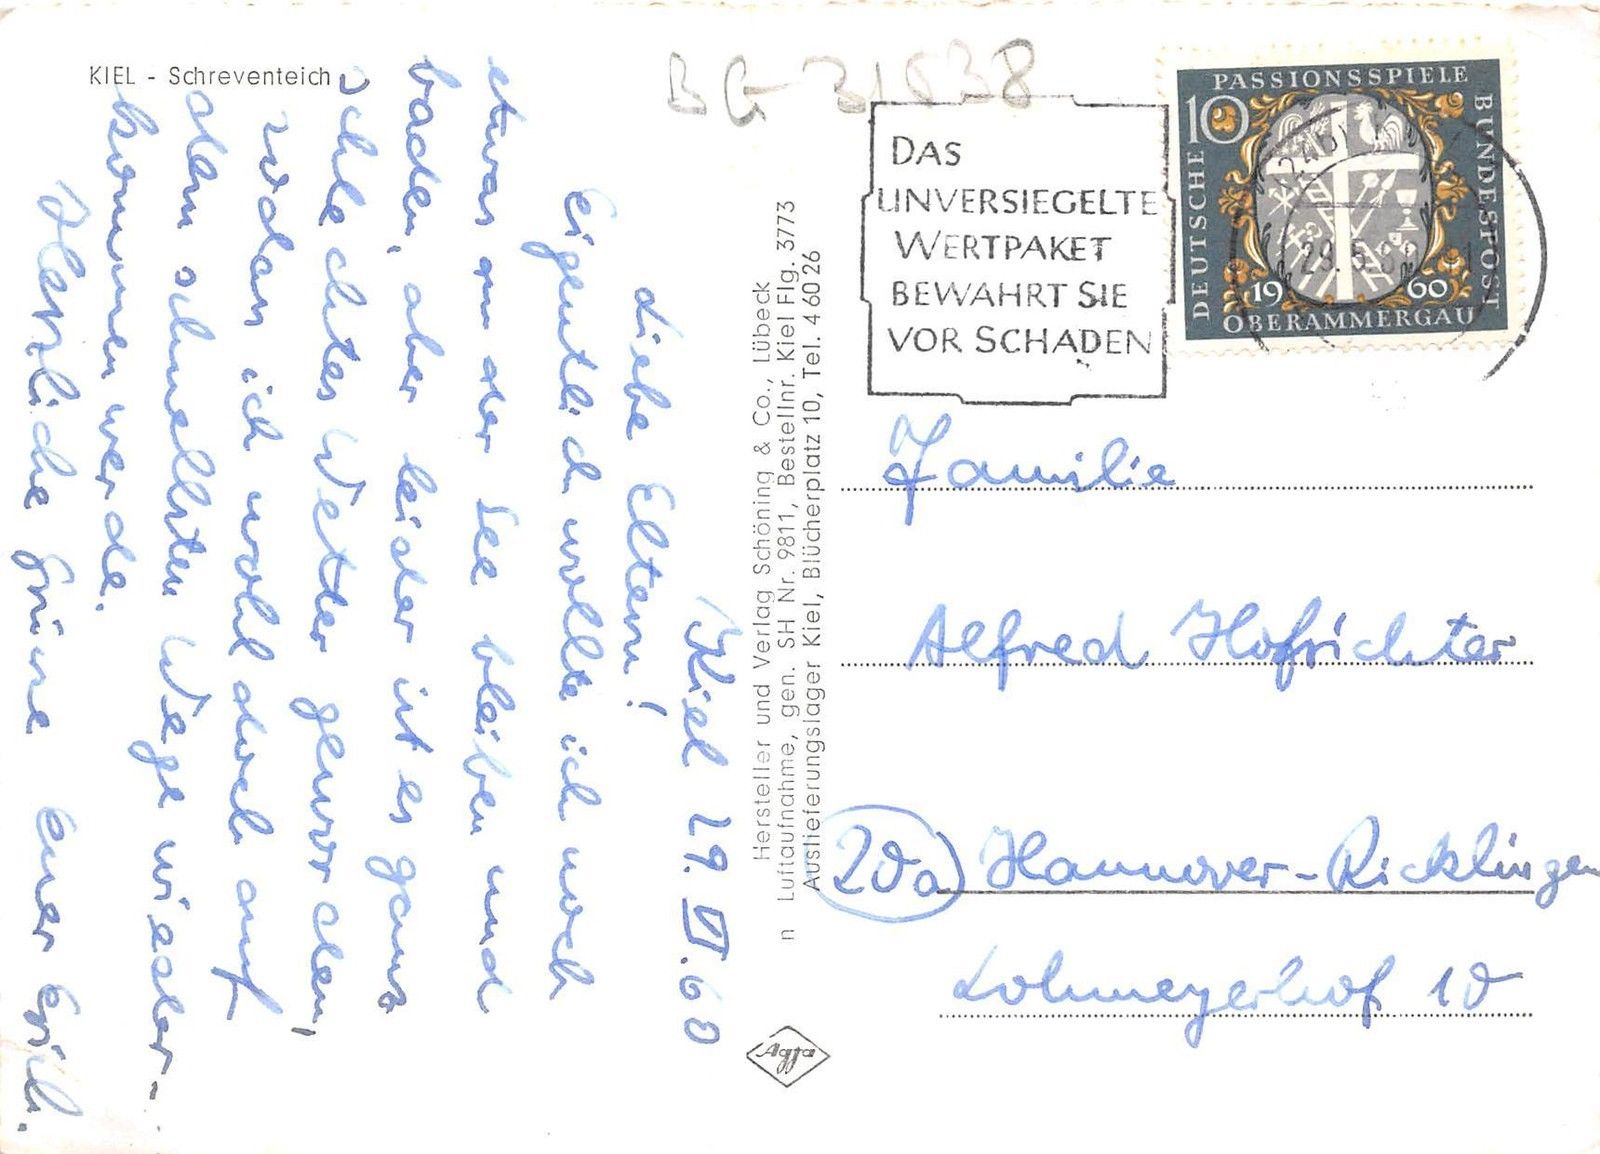 KIEL - Schreventeich
BG-31838
Kiel 29. VI. 60
Liebe Eltern!
Eigentlich wollte ich noch
etwas an der See bleiben und
baden, aber leider ist es ganz
schlechtes Wetter geworden,
sodass ich wohl doch auf
dem schnellsten Wege wieder-
kommen werde.
Herzliche Grüsse Euer
Hersteller und Verlag Schöning & Co., Lübeck
n Luftaufnahme, gen. SH Nr. 9811, Bestellnr. Kiel Flg. 3773
Auslieferungslager Kiel, Blücherplatz 10, Tel. 4 60 26
Agfa
DAS
UNVERSIEGELTE
WERTPAKET
BEWAHRT SIE
VOR SCHADEN
PASSIONSSPIELE
10
DEUTSCHE
BUNDESPOST
1960
OBERAMMERGAU
Familie
Alfred Hofrichter
20a Hannover-Ricklingen
Lohmeyerhof 10